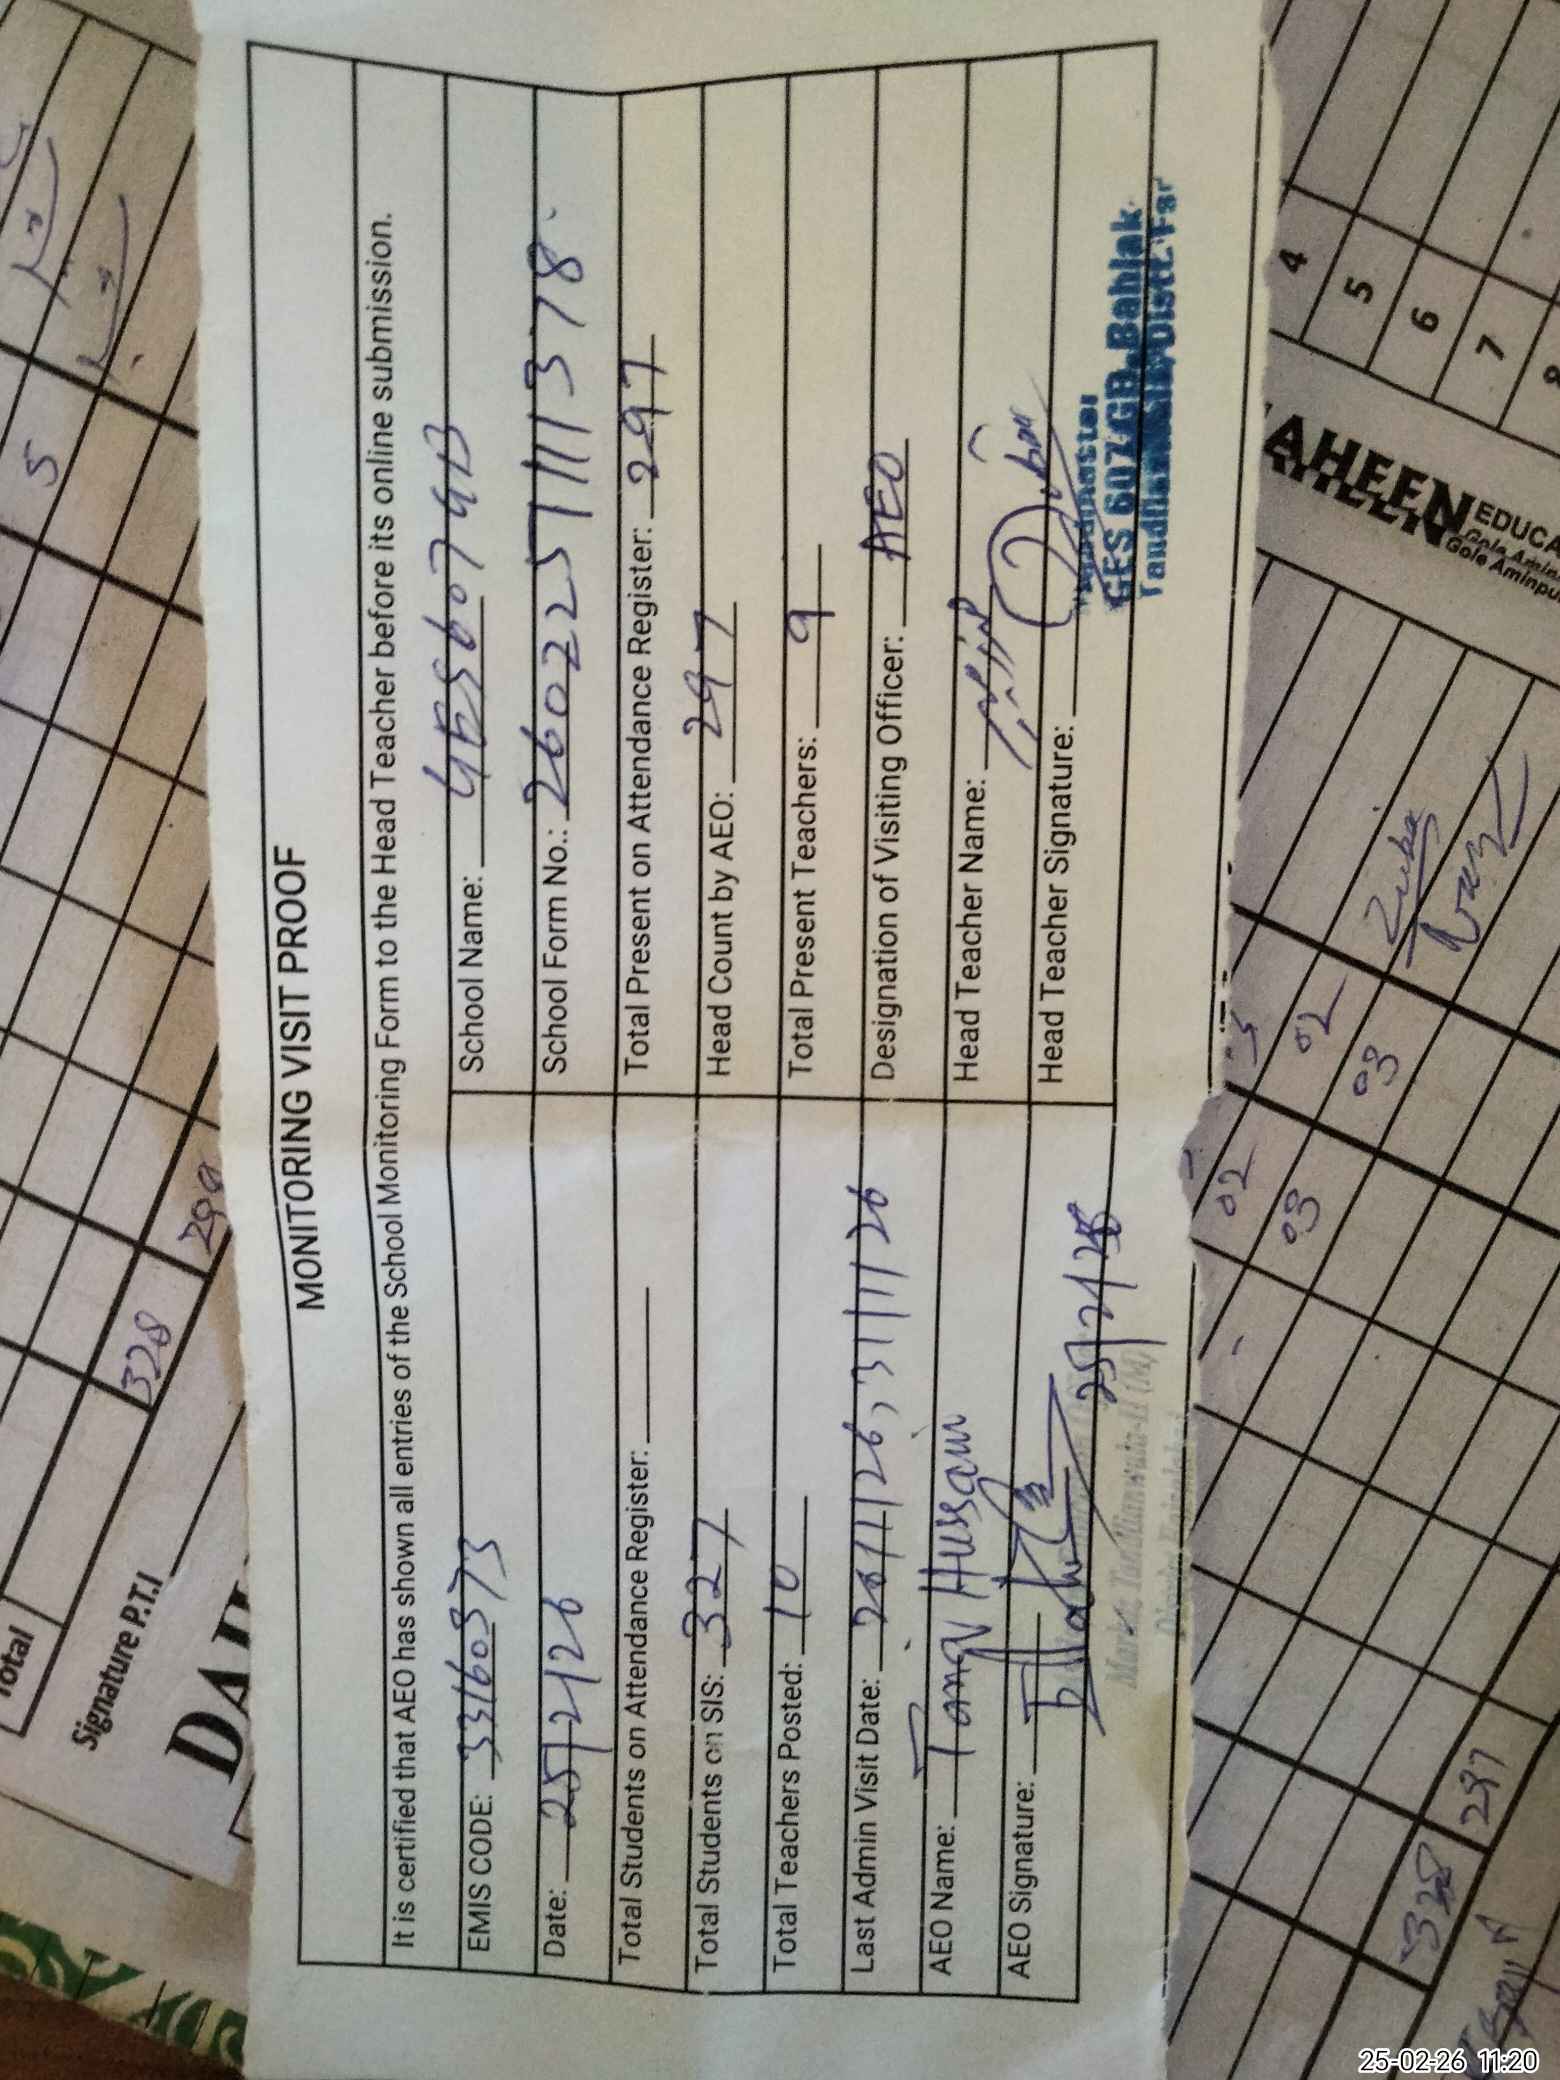 MONITORING VISIT PROOF
It is certified that AEO has shown all entries of the School Monitoring Form to the Head Teacher before its online submission.
EMIS CODE: 33160373 School Name: GES 607 GB
Date: 25/2/26 School Form No.: 2602251111378
Total Students on Attendance Register: Total Present on Attendance Register: 297
Total Students on SIS: 327 Head Count by AEO: 297
Total Teachers Posted: 10 Total Present Teachers: 9
Last Admin Visit Date: 20/1/26, 31/1/26 Designation of Visiting Officer: AEO
AEO Name: Hussain Head Teacher Name:
AEO Signature: 25/2/26 Head Teacher Signature:
GES 607 GB, Bahlak
Distt: Fsr
Total
328 299
Signature P.T.I
5
4
5
6
7
EDUCA
02
03
02
03
328 297
25-02-26 11:20